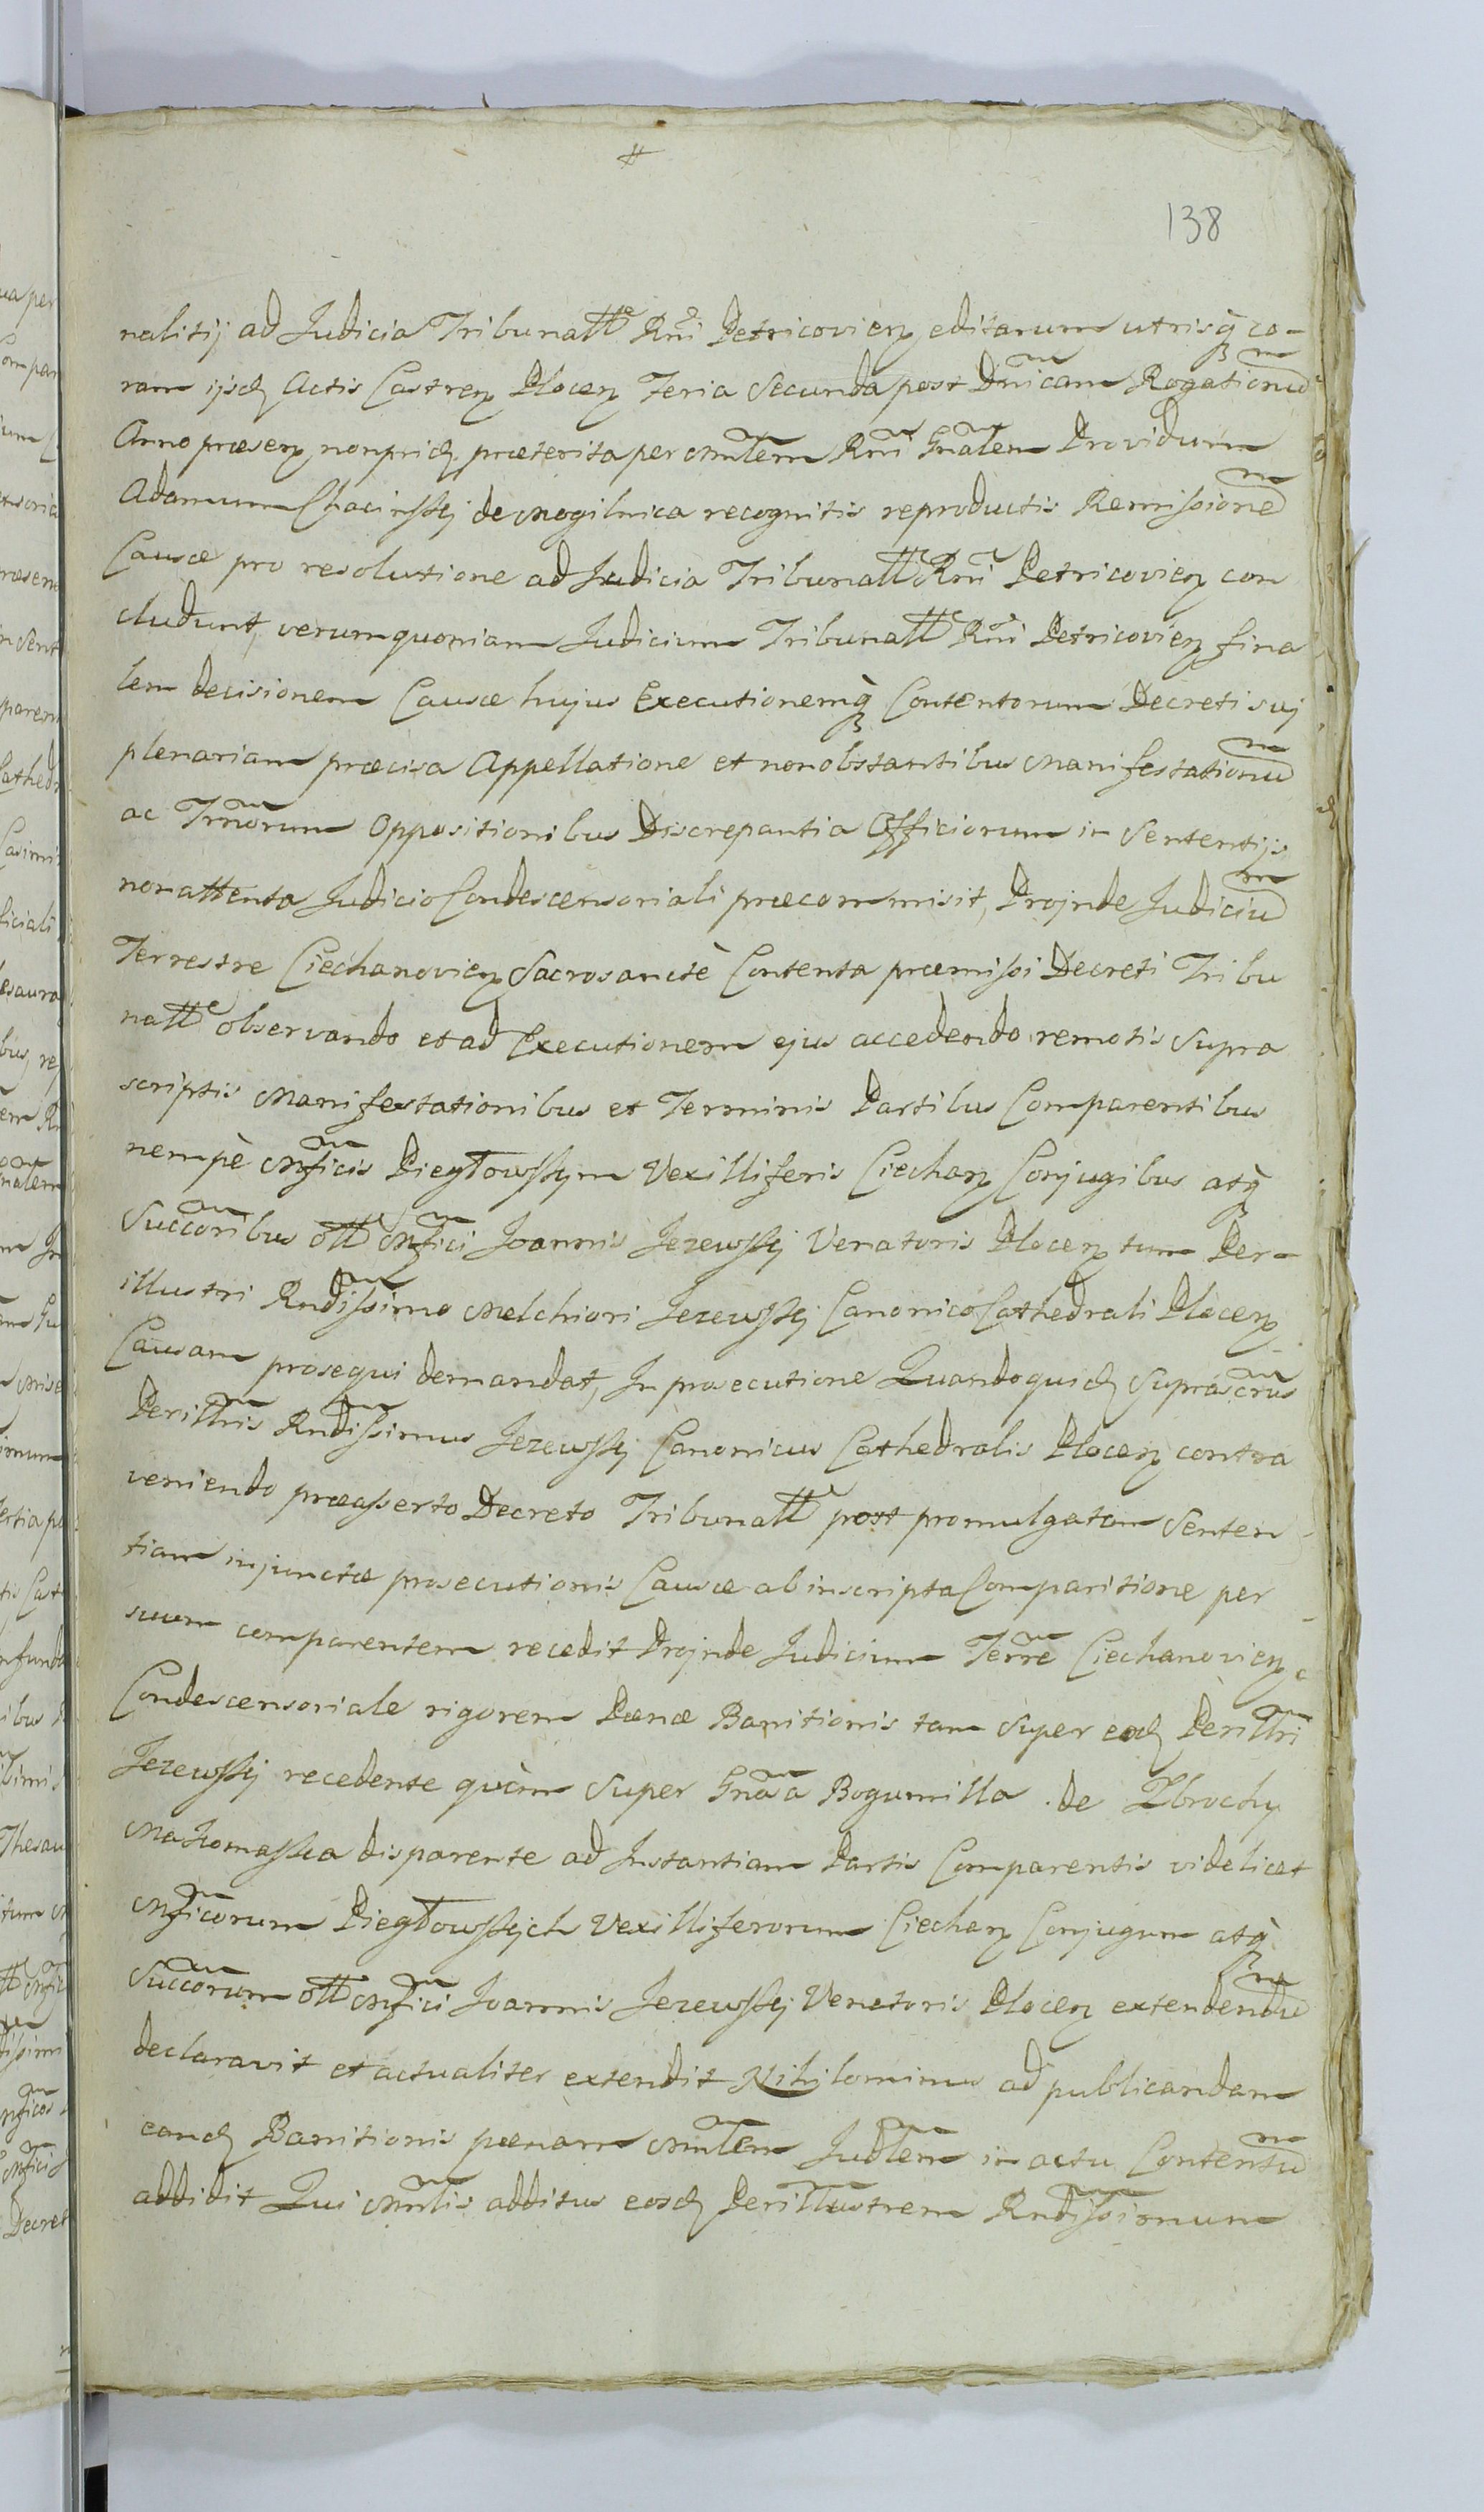 #
138
nalitij ad Judicia Tribunalle Rni Petricovien editarum utrisq co-
ram ijsd Actis Castren Plocen Feria Secunda post Dnicam Rogationu
Anno præsen non prid præterita per Mnlem Rni Gnalem Providum
Adamum Chacinsskij de Mogilnica recognitis reproductis Remissione
Causæ pro resolutione ad Judicia Tribunalle Rni Petricovien con
cludunt, verum quoniam Judicium Tribunalle Rni Petricovien fina
lem decisionem Causæ hujus Executionemq Contentorum Decreti suj
plenariam præcisa Appellatione et non obstantibus Manifestationu
ac Trnorum Oppositionibus Discrepantia Officiorum in Sententijs
non attenta Judicio Condescensoriali præcommisit, Projnde Judiciu
Terrestre Ciechanovien Sacrosanctè Contenta præmissi Decreti Tribu
nalle observando et ad Executionem ejus accedendo remotis Supra
scriptis Manifestationibus et Terminis Partibus Comparentibus
nempè Mficis Piegłowskym Vexilliferis Ciechan Conjugibus atq
Succoribus oll Mfici Joannis Jezewskij Venatoris Plocen tum Per-
illustri Rndissimo Melchiori Jezewskij Canonico Cathedrali Plocen
Causam prosequi demandat, In prosecutione Quandoquid Suprascrus
Perillris Rndissimus Jezewskij Canonicus Cathedralis Plocen contra
veniendo præasserto Decreto Tribunalle post promulgatam Senten
tiam injunctæ prosecutionis Causæ ab inscripta Comparitione per
suum comparentem recedit Projnde Judicium Terre Ciechanovien
Condescensoriale rigorem Pœnæ Banitionis tam Super eod Perillri
Jezewskij recedente quàm Super Gnosa Bogumilla de Zbrochy
Makomaska disparente ad Instantiam Partis Comparentis videlicet
Mficorum Piegłowskijch Vexilliferorum Ciechan Conjugum atq
Succorum oll Mfici Joannis Jezewskij Venatoris Plocen extendendu
declaravit et actualiter extendit Nihilominus ad publicandam
eand Banitionis pœnam Mnlem Judlem in actu Contentu
addidit Qui Mnlis additus eosd Perillustrem Rndissimum